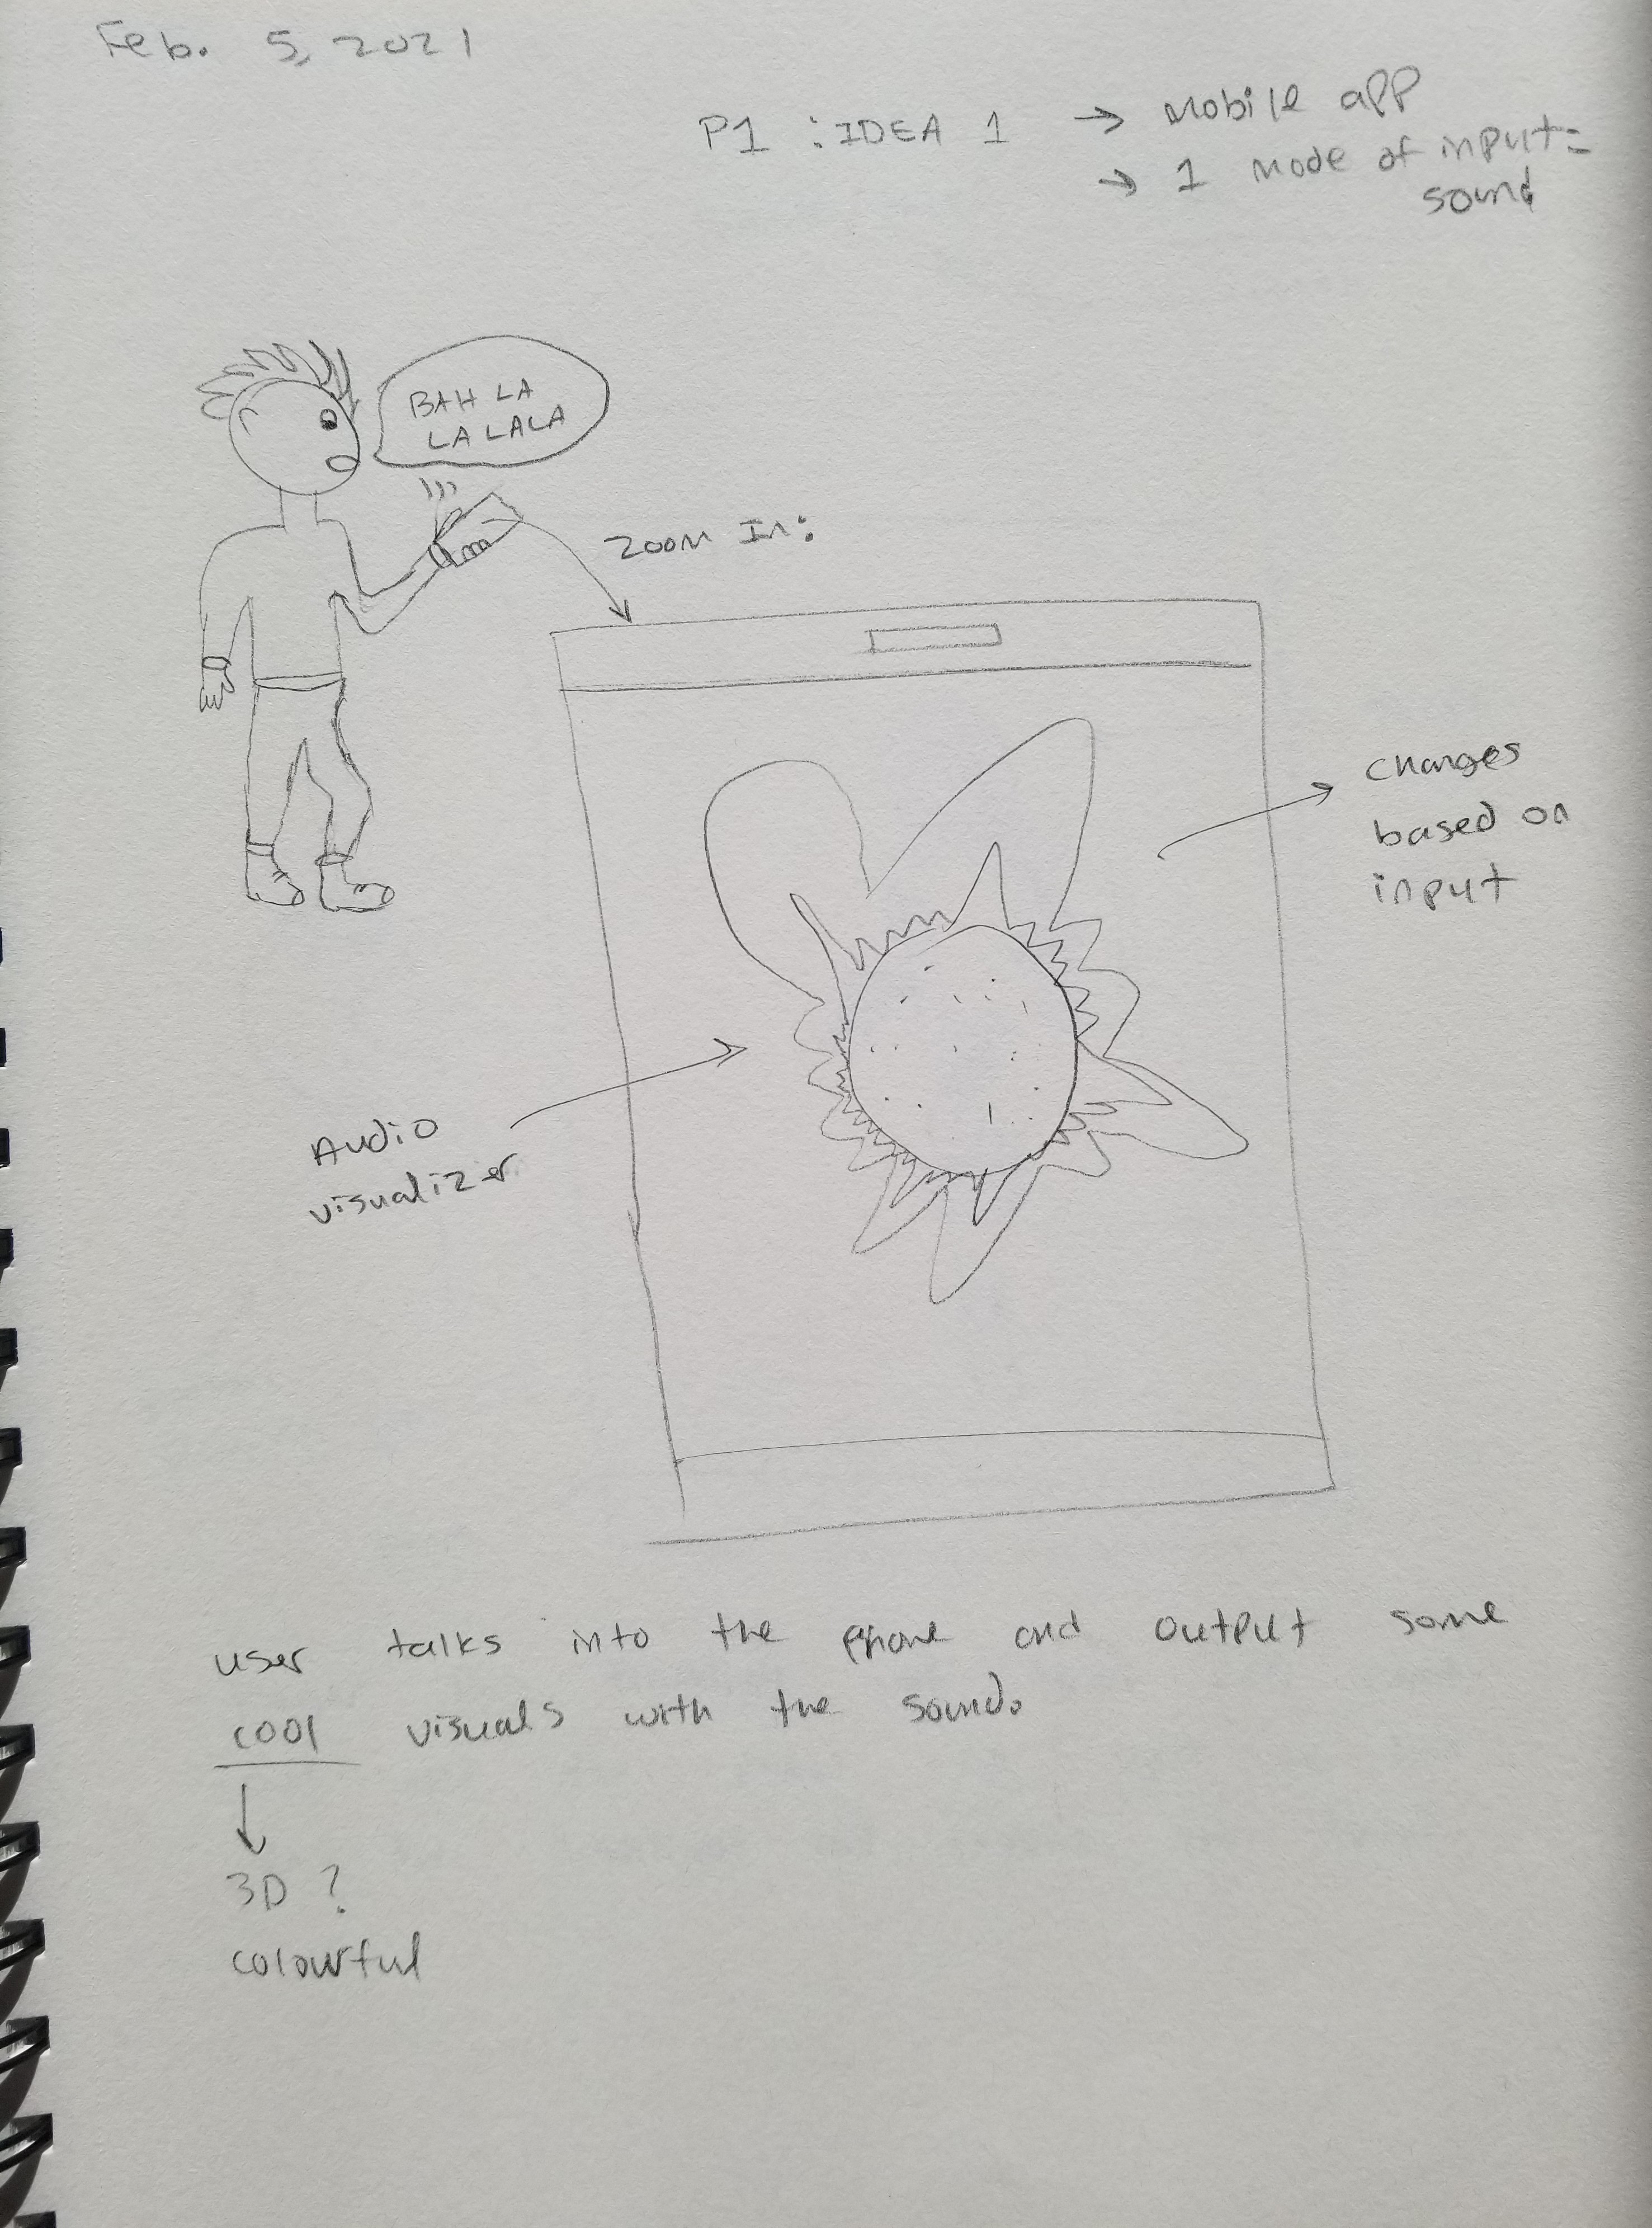 Feb. 5, 2021
P1 : IDEA 1 → Mobile app
→ 1 mode of input =
sound
BAH LA
LA LALA
Zoom In:
Changes
based on
input
Audio
visualizer
user talks into the phone and output some
cool visuals with the sound.
3D ?
colourful